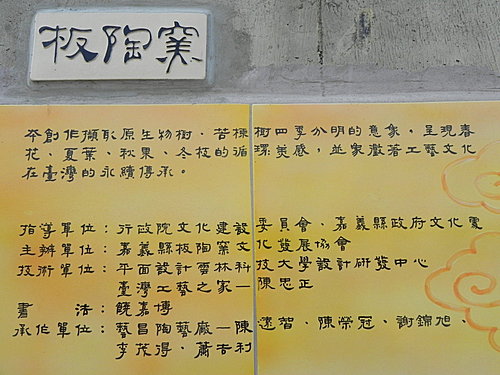 板陶窯
本創作擷取原生物樹、苦楝樹四季分明的意象，呈現春
花、夏葉、秋果、冬枝的循環美感，並象徵著工藝文化
在臺灣的永續傳承。
指導單位：行政院文化建設委員會、嘉義縣政府文化處
主辦單位：嘉義縣板陶窯文化發展協會
技術單位：平面設計雲林科技大學設計研發中心
臺灣工藝之家－陳思正
書法：饒嘉博
承作單位：藝昌陶藝廠－陳遠智、陳榮冠、謝錦旭、
李茂得、蕭吉利